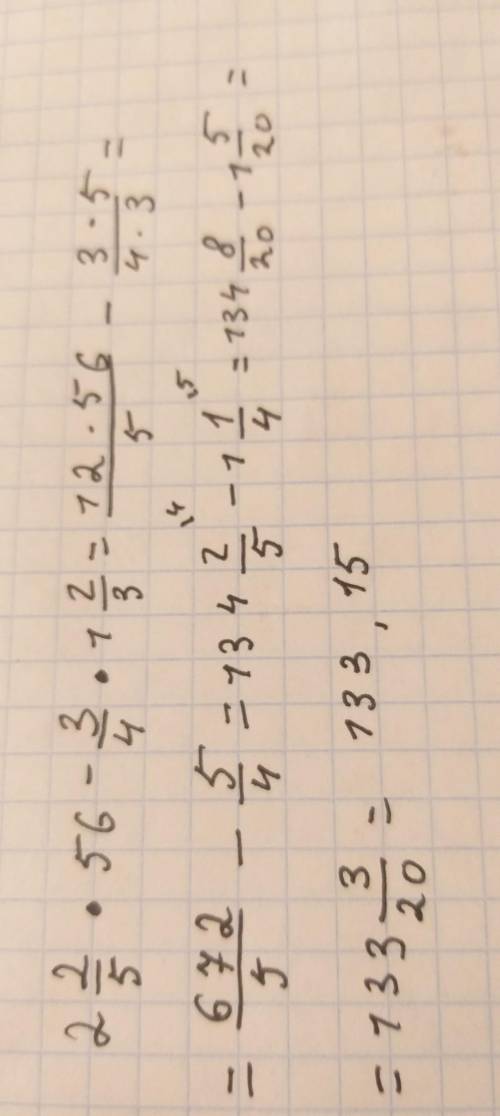 2 2/5 • 56 - 3/4 • 1 2/3 = 12 · 56/5 - 3 · 5/4 · 3 =
= 672/5 - 5/4 = 134 2/5 \4 - 1 1/4 \5 = 134 8/20 - 1 5/20 =
= 133 3/20 = 133,15